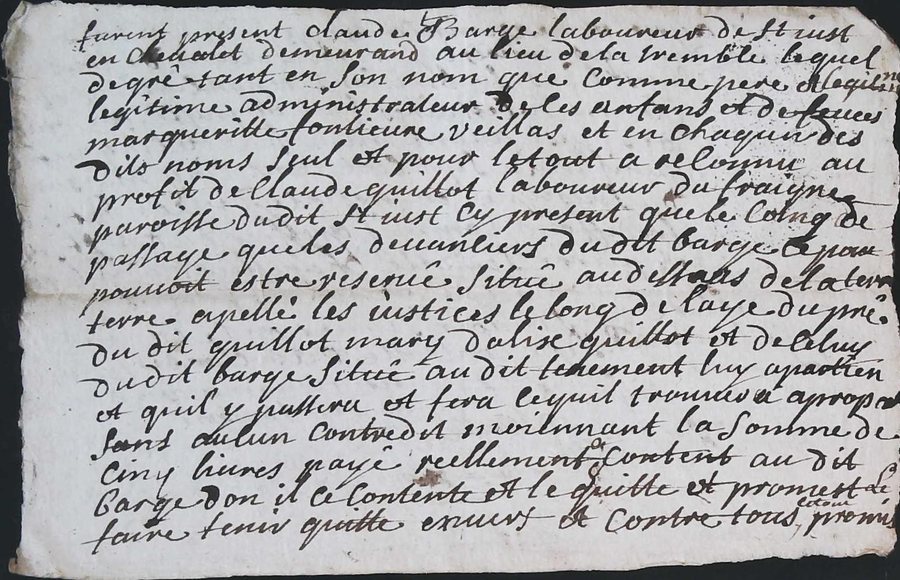 furent present claude Barge laboureur de st iust
en chevalet demeurand au lieu de la tremble lequel
de grê tant en son nom que comme pere et legitime
legitime administrateur de ses anfans et de feues
margueritte fontieure veillas et en chaquin des
dits noms seul et pour le tout a reconnu au
profit de Claude guillot laboureur du fraigne
paroisse dudit st iust cy present que le coing de
passage que les devanciers du dit barge ce
pouvoit estre reservê situê au dessus de la terre
terre apellê les iustices le long de laye du prê
du dit guillot mary dalise guillot et de celuy
du dit barge situê au dit tenement luy apartien
et quil y passera et fera ce quil trouvera apropos
sans aucun contredit moiennant la somme de
cinq livres payê reellement content au dit
barge don il ce contente et le quitte et promest le
faire tenir quitte envers et contre tous, promis